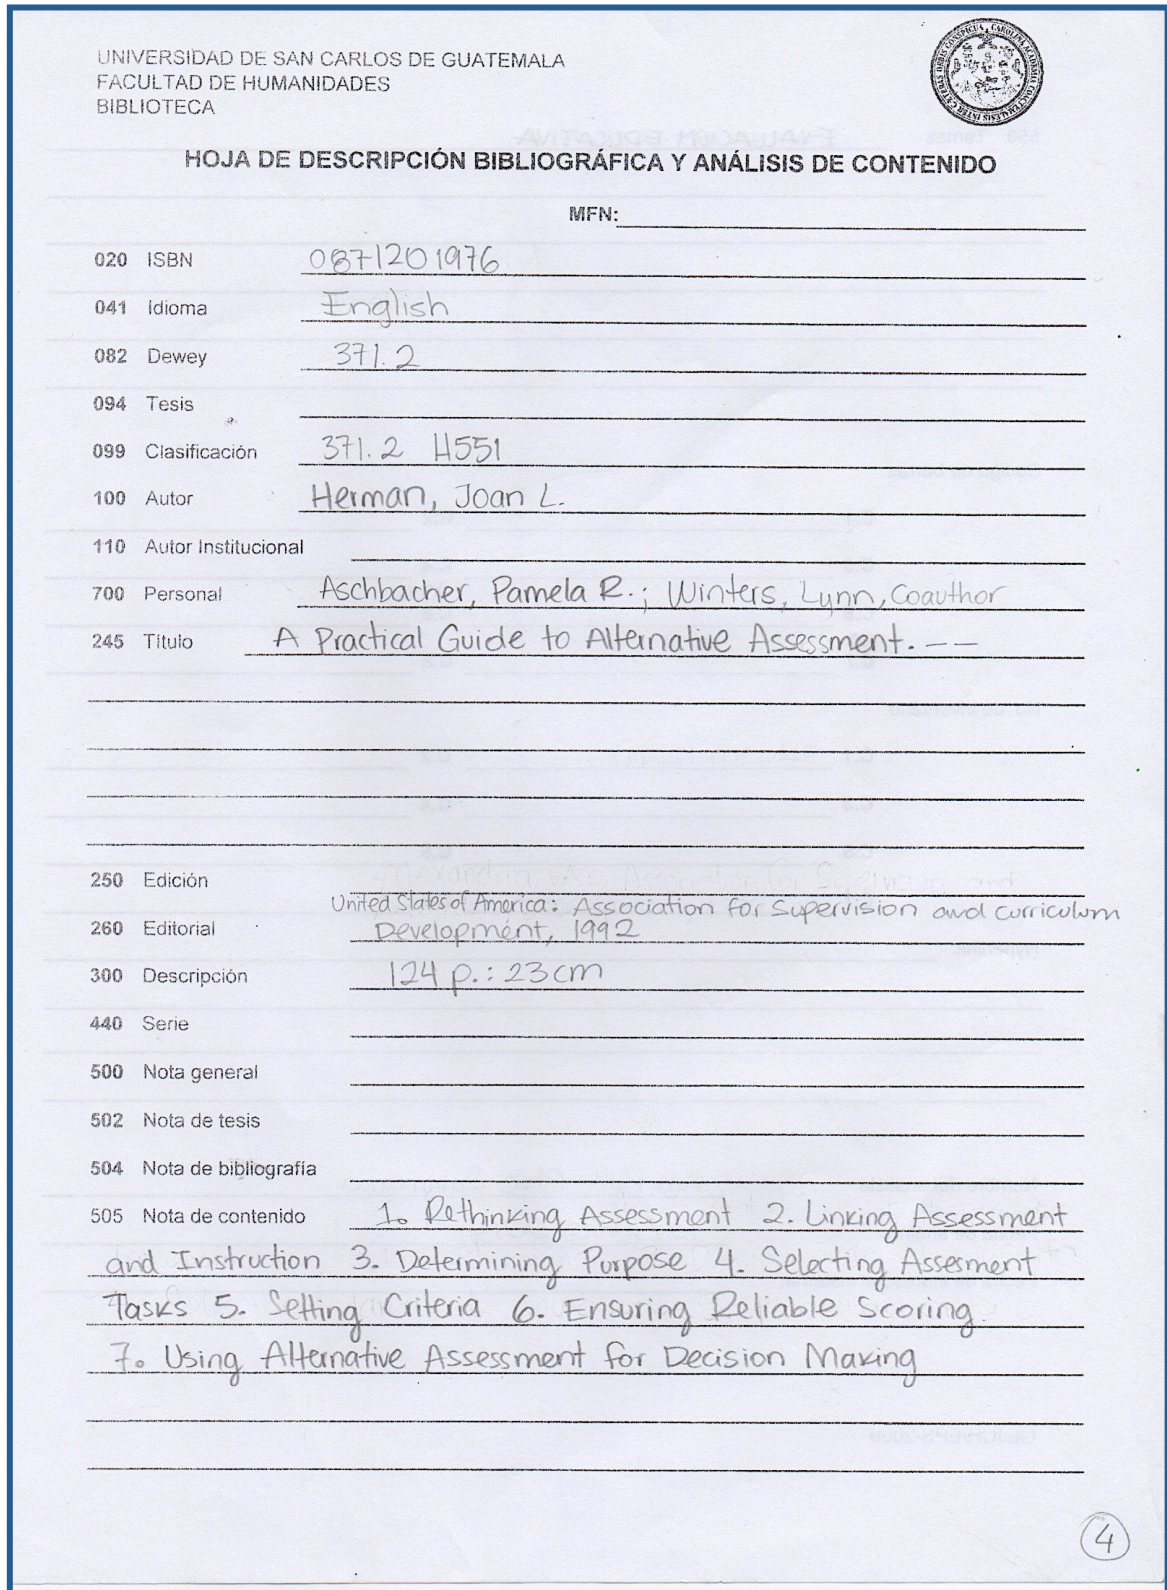 UNIVERSIDAD DE SAN CARLOS DE GUATEMALA
FACULTAD DE HUMANIDADES
BIBLIOTECA
HOJA DE DESCRIPCIÓN BIBLIOGRÁFICA Y ANÁLISIS DE CONTENIDO
MFN:
020 ISBN 0871201976
041 Idioma English
082 Dewey 371.2
094 Tesis
099 Clasificación 371.2 H551
100 Autor Herman, Joan L.
110 Autor Institucional
700 Personal Aschbacher, Pamela R.; Winters, Lynn, Coauthor
245 Título A Practical Guide to Alternative Assessment. --
250 Edición
United States of America: Association for Supervision and curriculum
260 Editorial Development, 1992
300 Descripción 124 p. : 23 cm
440 Serie
500 Nota general
502 Nota de tesis
504 Nota de bibliografía
505 Nota de contenido 1. Rethinking Assessment 2. Linking Assessment
and Instruction 3. Determining Purpose 4. Selecting Assesment
Tasks 5. Setting Criteria 6. Ensuring Reliable Scoring
7. Using Alternative Assessment for Decision Making
4